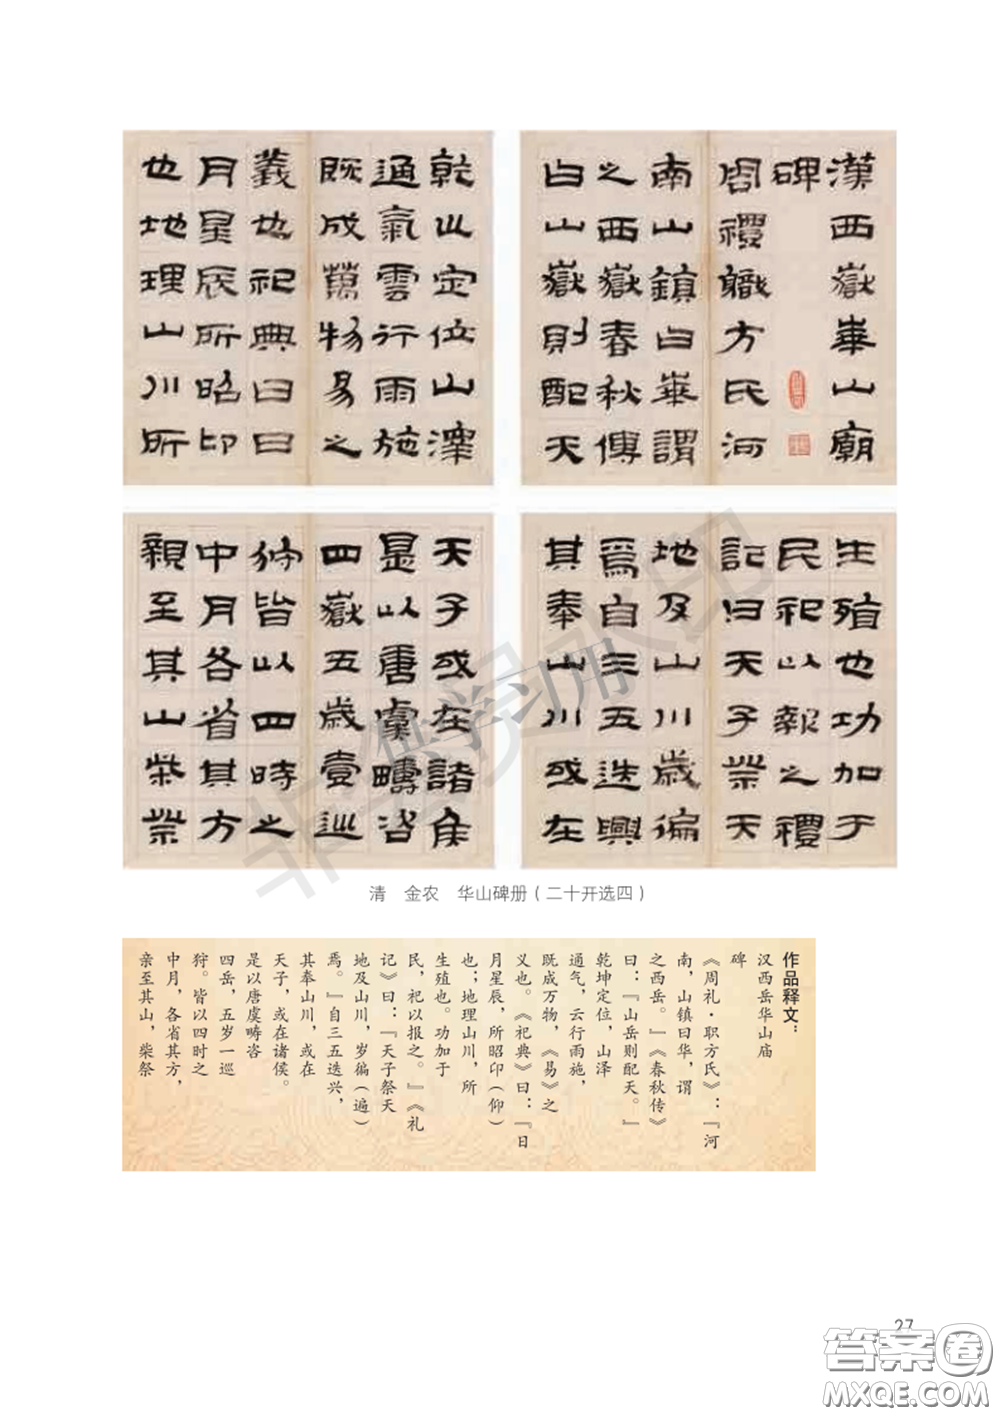 漢西嶽華山廟
碑
周禮職方氏河
南山鎮曰華謂
之西嶽春秋傳
曰山嶽則配天
乾坤定位山澤
通氣雲行雨施
既成萬物易之
義也祀典曰日
月星辰所昭卬
也地理山川所
生殖也功加于
民祀以報之禮
記曰天子祭天
地及山川歲徧
焉自三五迭興
其奉山川或在
天子或在諸侯
是以唐虞疇咨
四嶽五歲壹巡
狩皆以四時之
中月各省其方
親至其山柴祭
清 金农 华山碑册（二十开选四）
作品释文：
汉西岳华山庙
碑
《周礼·职方氏》：『河
南，山镇曰华，谓
之西岳。』《春秋传》
曰：『山岳则配天。』
乾坤定位，山泽
通气，云行雨施，
既成万物，《易》之
义也。《祀典》曰：『日
月星辰，所昭卬（仰）
也；地理山川，所
生殖也。功加于
民，祀以报之。』《礼
记》曰：『天子祭天
地及山川，岁徧（遍）
焉。』自三五迭兴，
其奉山川，或在
天子，或在诸侯。
是以唐虞畴咨
四岳，五岁一巡
狩。皆以四时之
中月，各省其方，
亲至其山，柴祭
27
答案圈
MXQE.COM